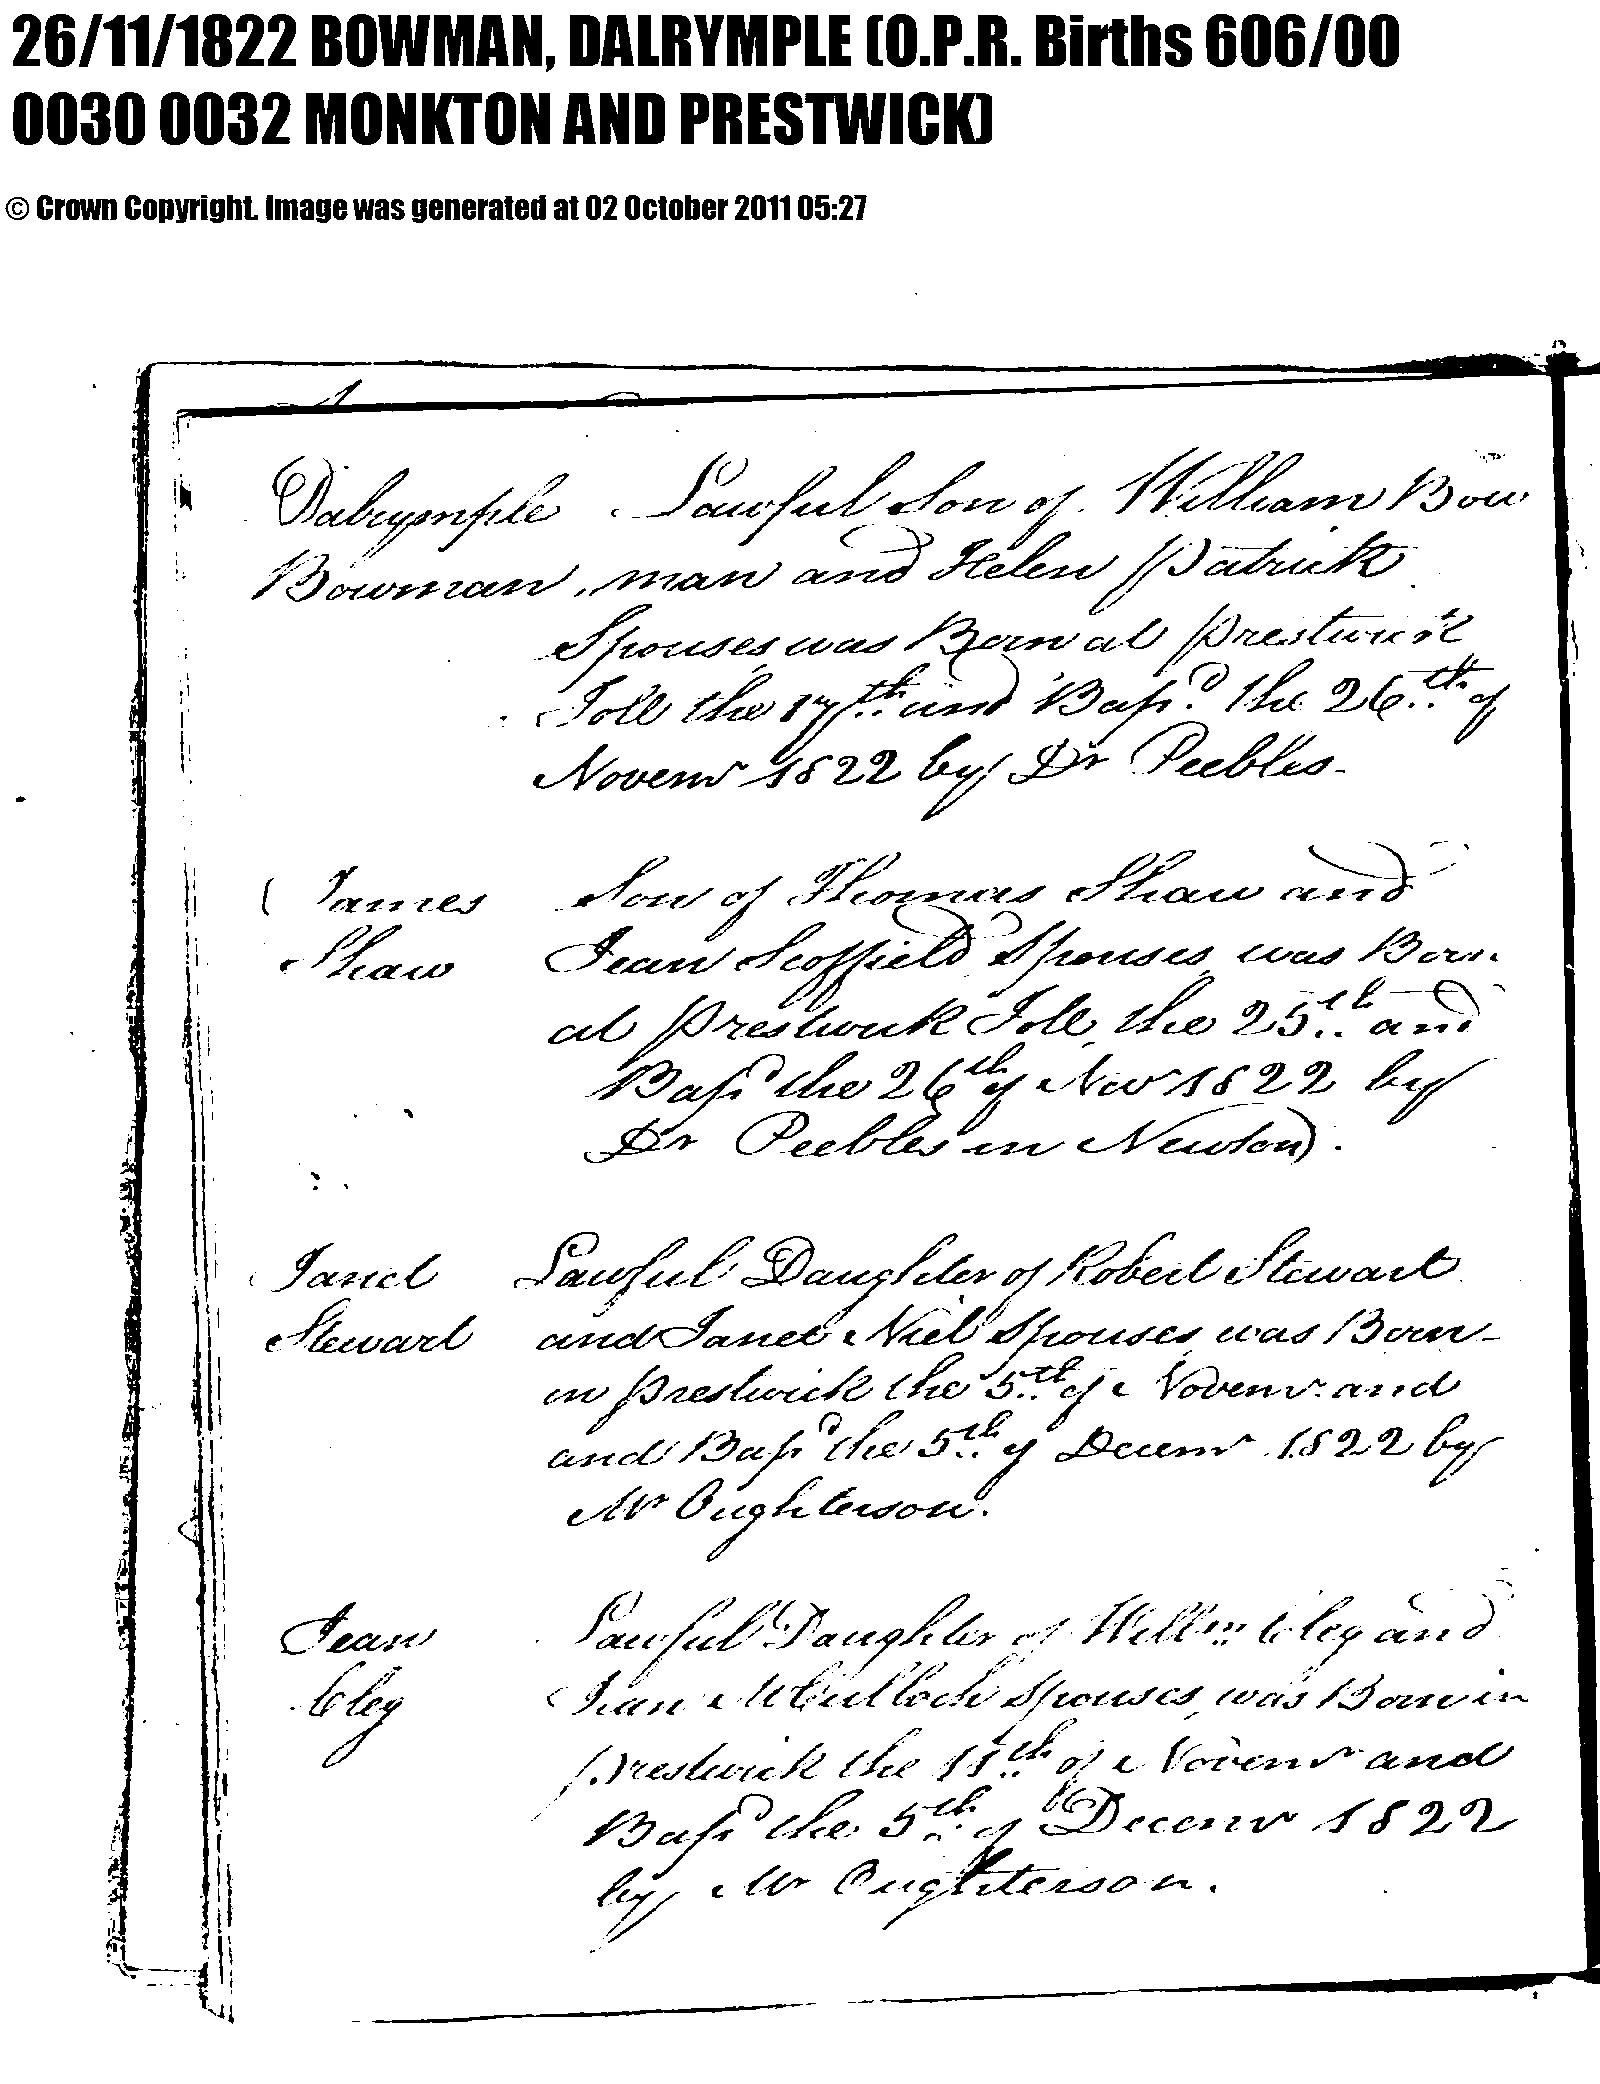 26/11/1822 BOWMAN, DALRYMPLE (O.P.R. Births 606/00
0030 0032 MONKTON AND PRESTWICK)
© Crown Copyright. Image was generated at 02 October 2011 05:27
Dalrymple Lawful Son of William Bow
Bowman man and Helen Patrick
Spouses, was Born at Prestwick
Toll the 17th and Bapd the 26th of
Novemr 1822 by Dr Peebles.
James Son of Thomas Shaw and
Shaw Jean Scoffield Spouses, was Born
at Prestwick Toll, the 25th and
Bapd the 26th of Nov 1822 by
Dr Peebles in Newton.
Janet Lawful Daughter of Robert Stewart
Stewart and Janet Niel Spouses, was Born
in Prestwick the 5th of Novemr and
and Bapd the 5th of Decemr 1822 by
Mr Oughterson.
Jean Lawful Daughter of Willm Cleg and
Cleg Jean McCulloch Spouses, was Born in
Prestwick the 11th of Novemr and
Bapd the 5th of Decemr 1822
by Mr Oughterson.